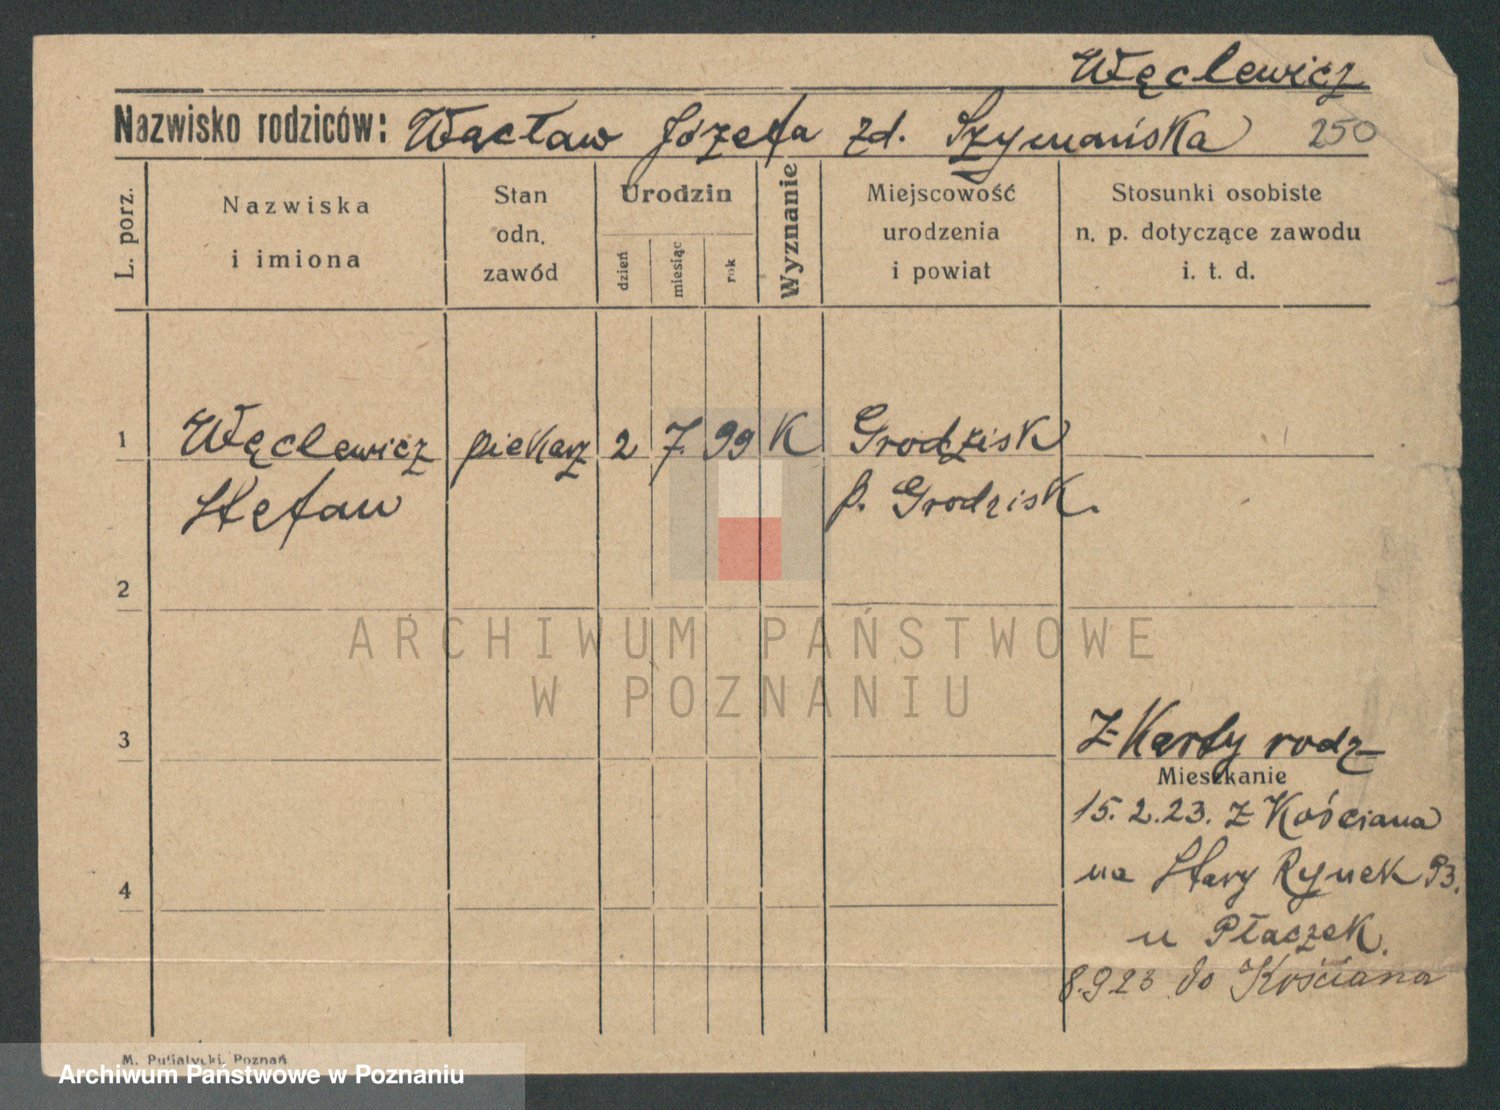 Węclewicz
Nazwisko rodziców: Wacław Józefa zd. Szymańska 250
L. porz.
Nazwiska
i imiona
Stan
odn.
zawód
Urodzin
dzień
miesiąc
rok
Wyznanie
Miejscowość
urodzenia
i powiat
Stosunki osobiste
n. p. dotyczące zawodu
i. t. d.
1 Węclewicz piekarz 2 7. 99 K Grodzisk
Stefan p. Grodzisk.
2
ARCHIWUM PAŃSTWOWE
W POZNANIU
3 Z Karty rodz
Mieszkanie
15. 2. 23. z Kościana
4 na Stary Rynek 93.
u Płaczek.
8.9 23 do Kościana
M. Putiatycki, Poznań
Archiwum Państwowe w Poznaniu